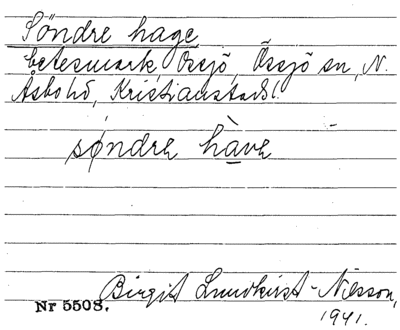 Söndre hage
betesmark, Össjö, Össjö sn, N.
Åsbohd, Kristianstads l.
søndrə hàvə
Birgit Lundkvist-Nilsson,
1941.
Nr 5508.